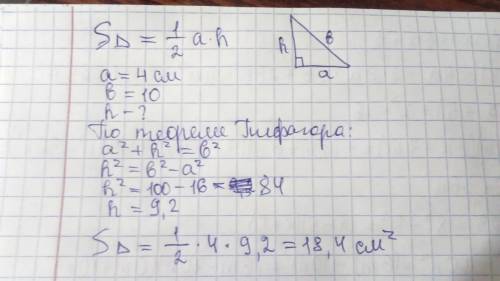 S△ = 1/2 a·h
h в
a
a = 4 см
в = 10
h - ?
По теореме Пифагора:
a² + h² = в²
h² = в² - a²
h² = 100 - 16 = 84
h = 9,2
S△ = 1/2 · 4 · 9,2 = 18,4 см²